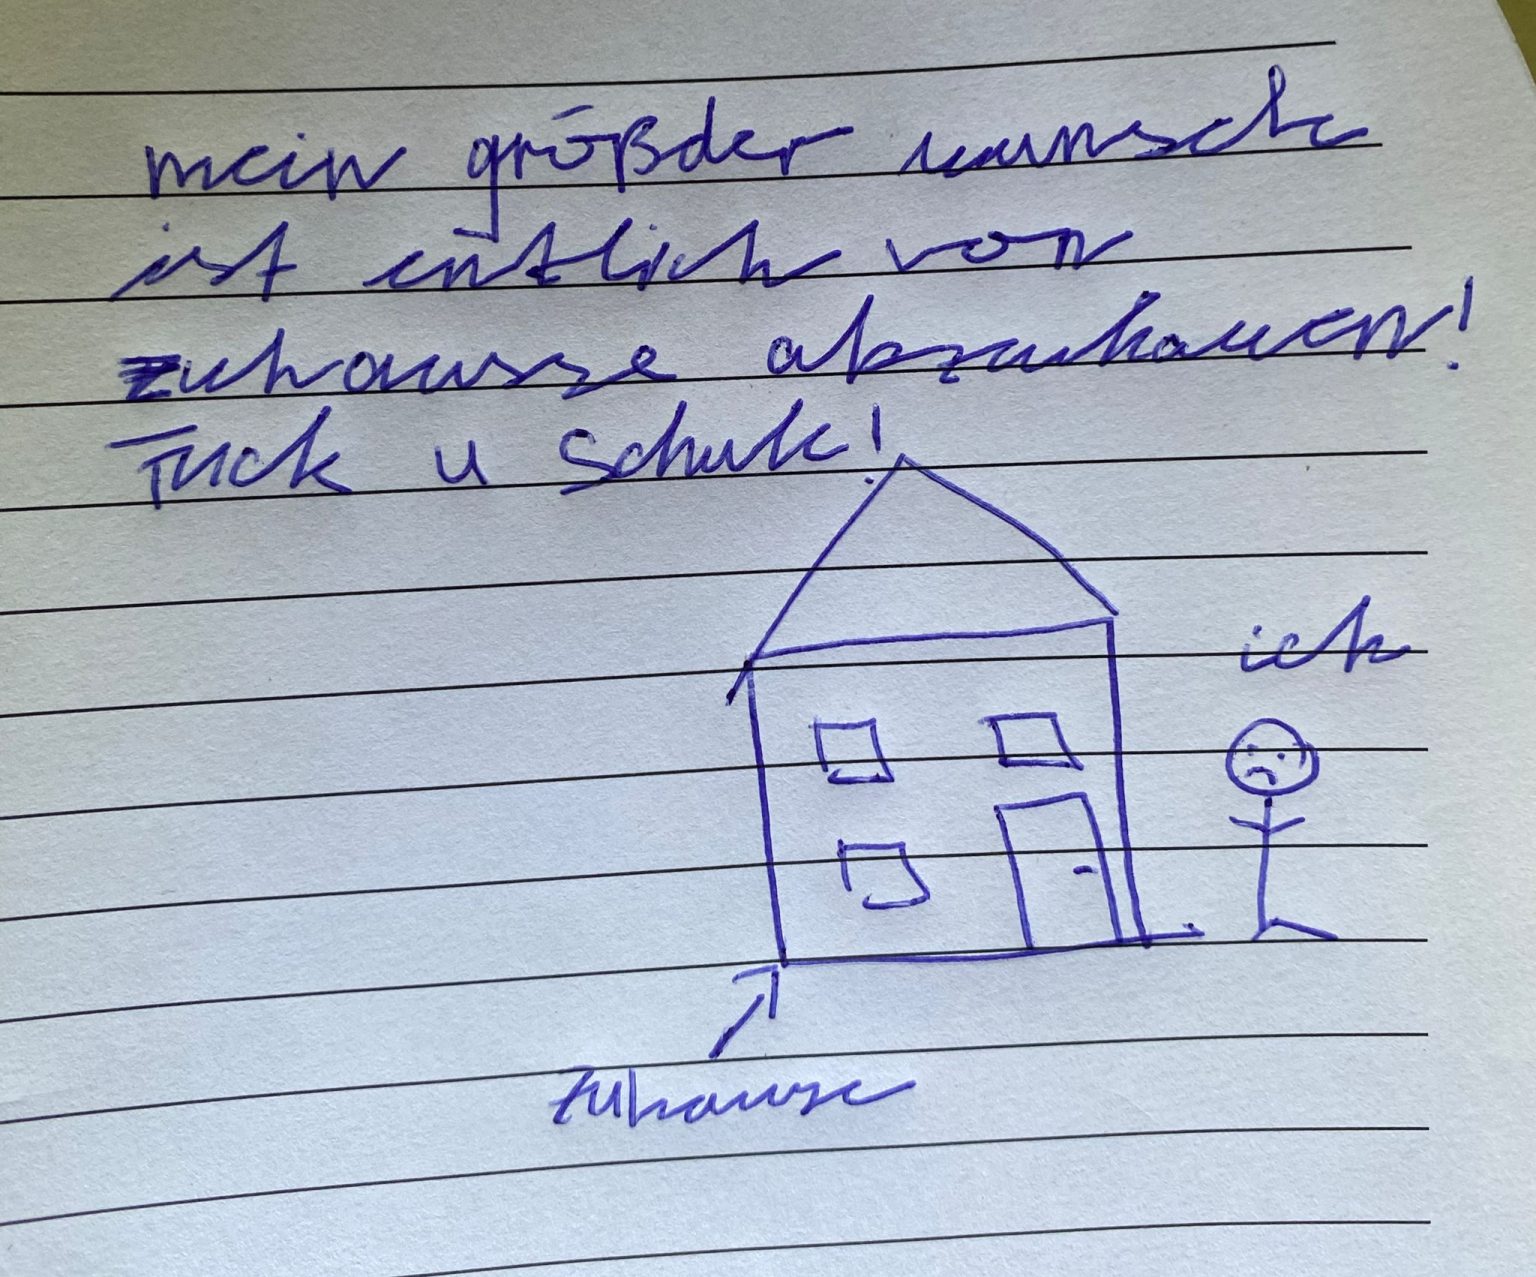 mein größder wunsch
ist entlich von
zuhausse abzuhauen!
Fuck u Schule!
ich
zuhause